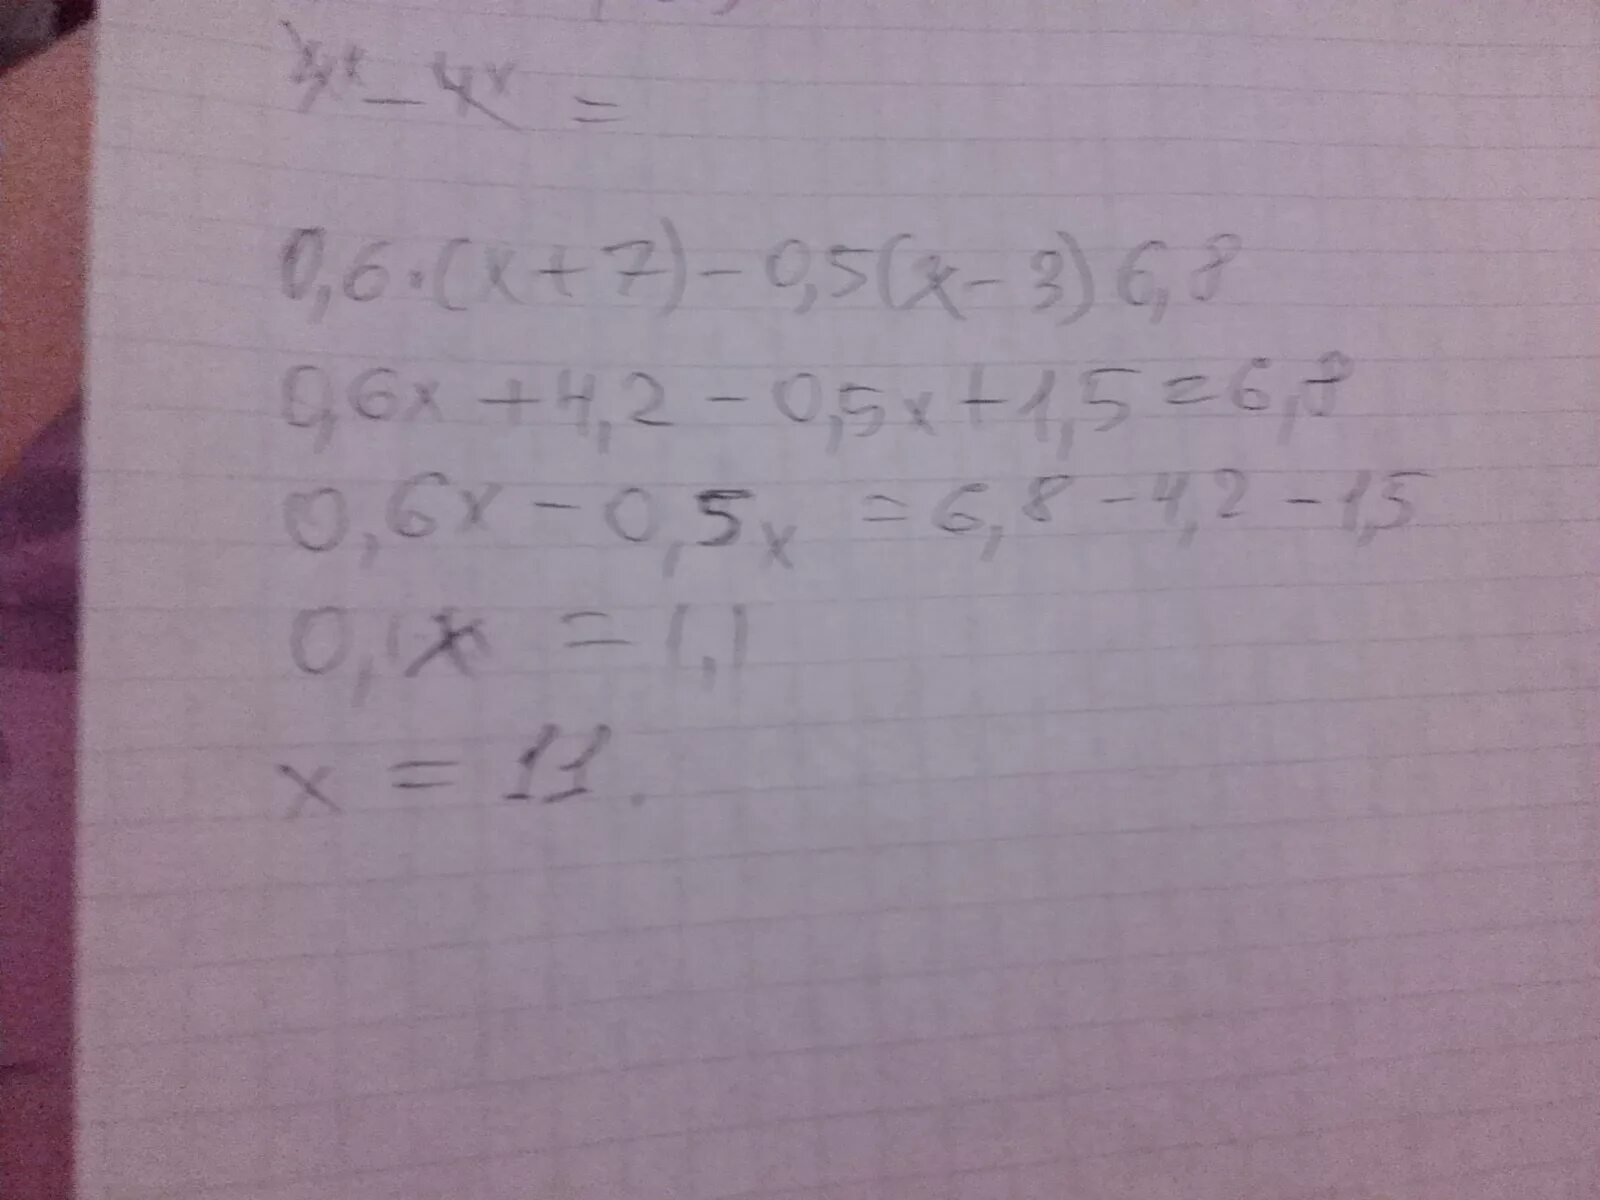 4x - 4x =
0,6·(x+7)-0,5(x-3)6,8
0,6x+4,2-0,5x+1,5=6,8
0,6x-0,5x=6,8-4,2-1,5
0,1x=1,1
x=11.